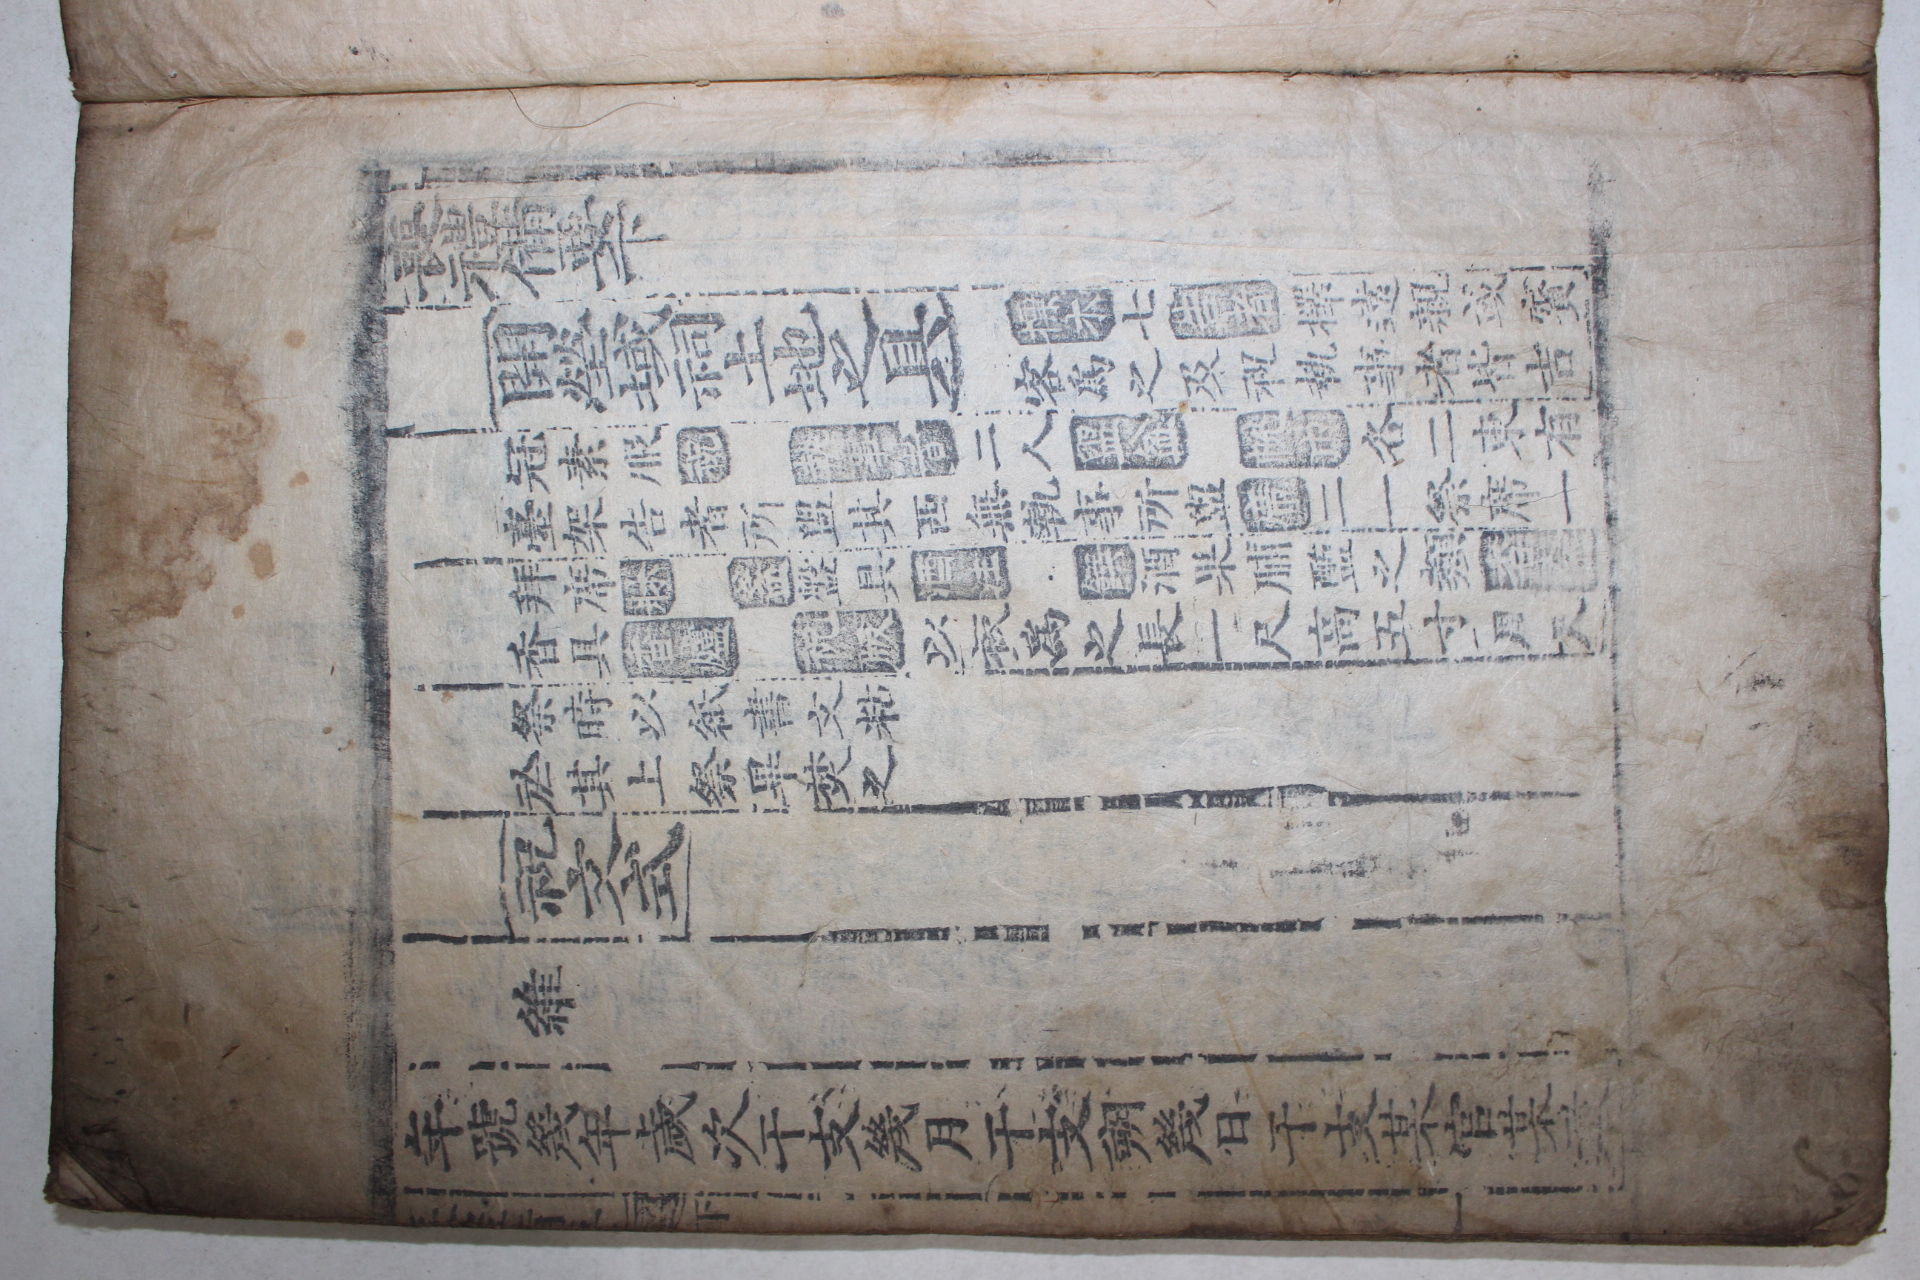 喪禮備要下
開塋域祠土地之具
標木七告者擇遠親或賓
客爲之及祝執事者皆吉
冠素服祝執事者二人盥盆帨巾各二東有
臺架告者所盥其西無執事所盥席二一祭席一
拜席盞盤具酒注饌酒果脯醢之類
香具香爐祝版以板爲之長一尺高五寸用尺
祭時以紙書文粘
於其上祭畢焚之
祝文式
維
年號幾年歲次干支幾月干支朔幾日干支某官某
下 一